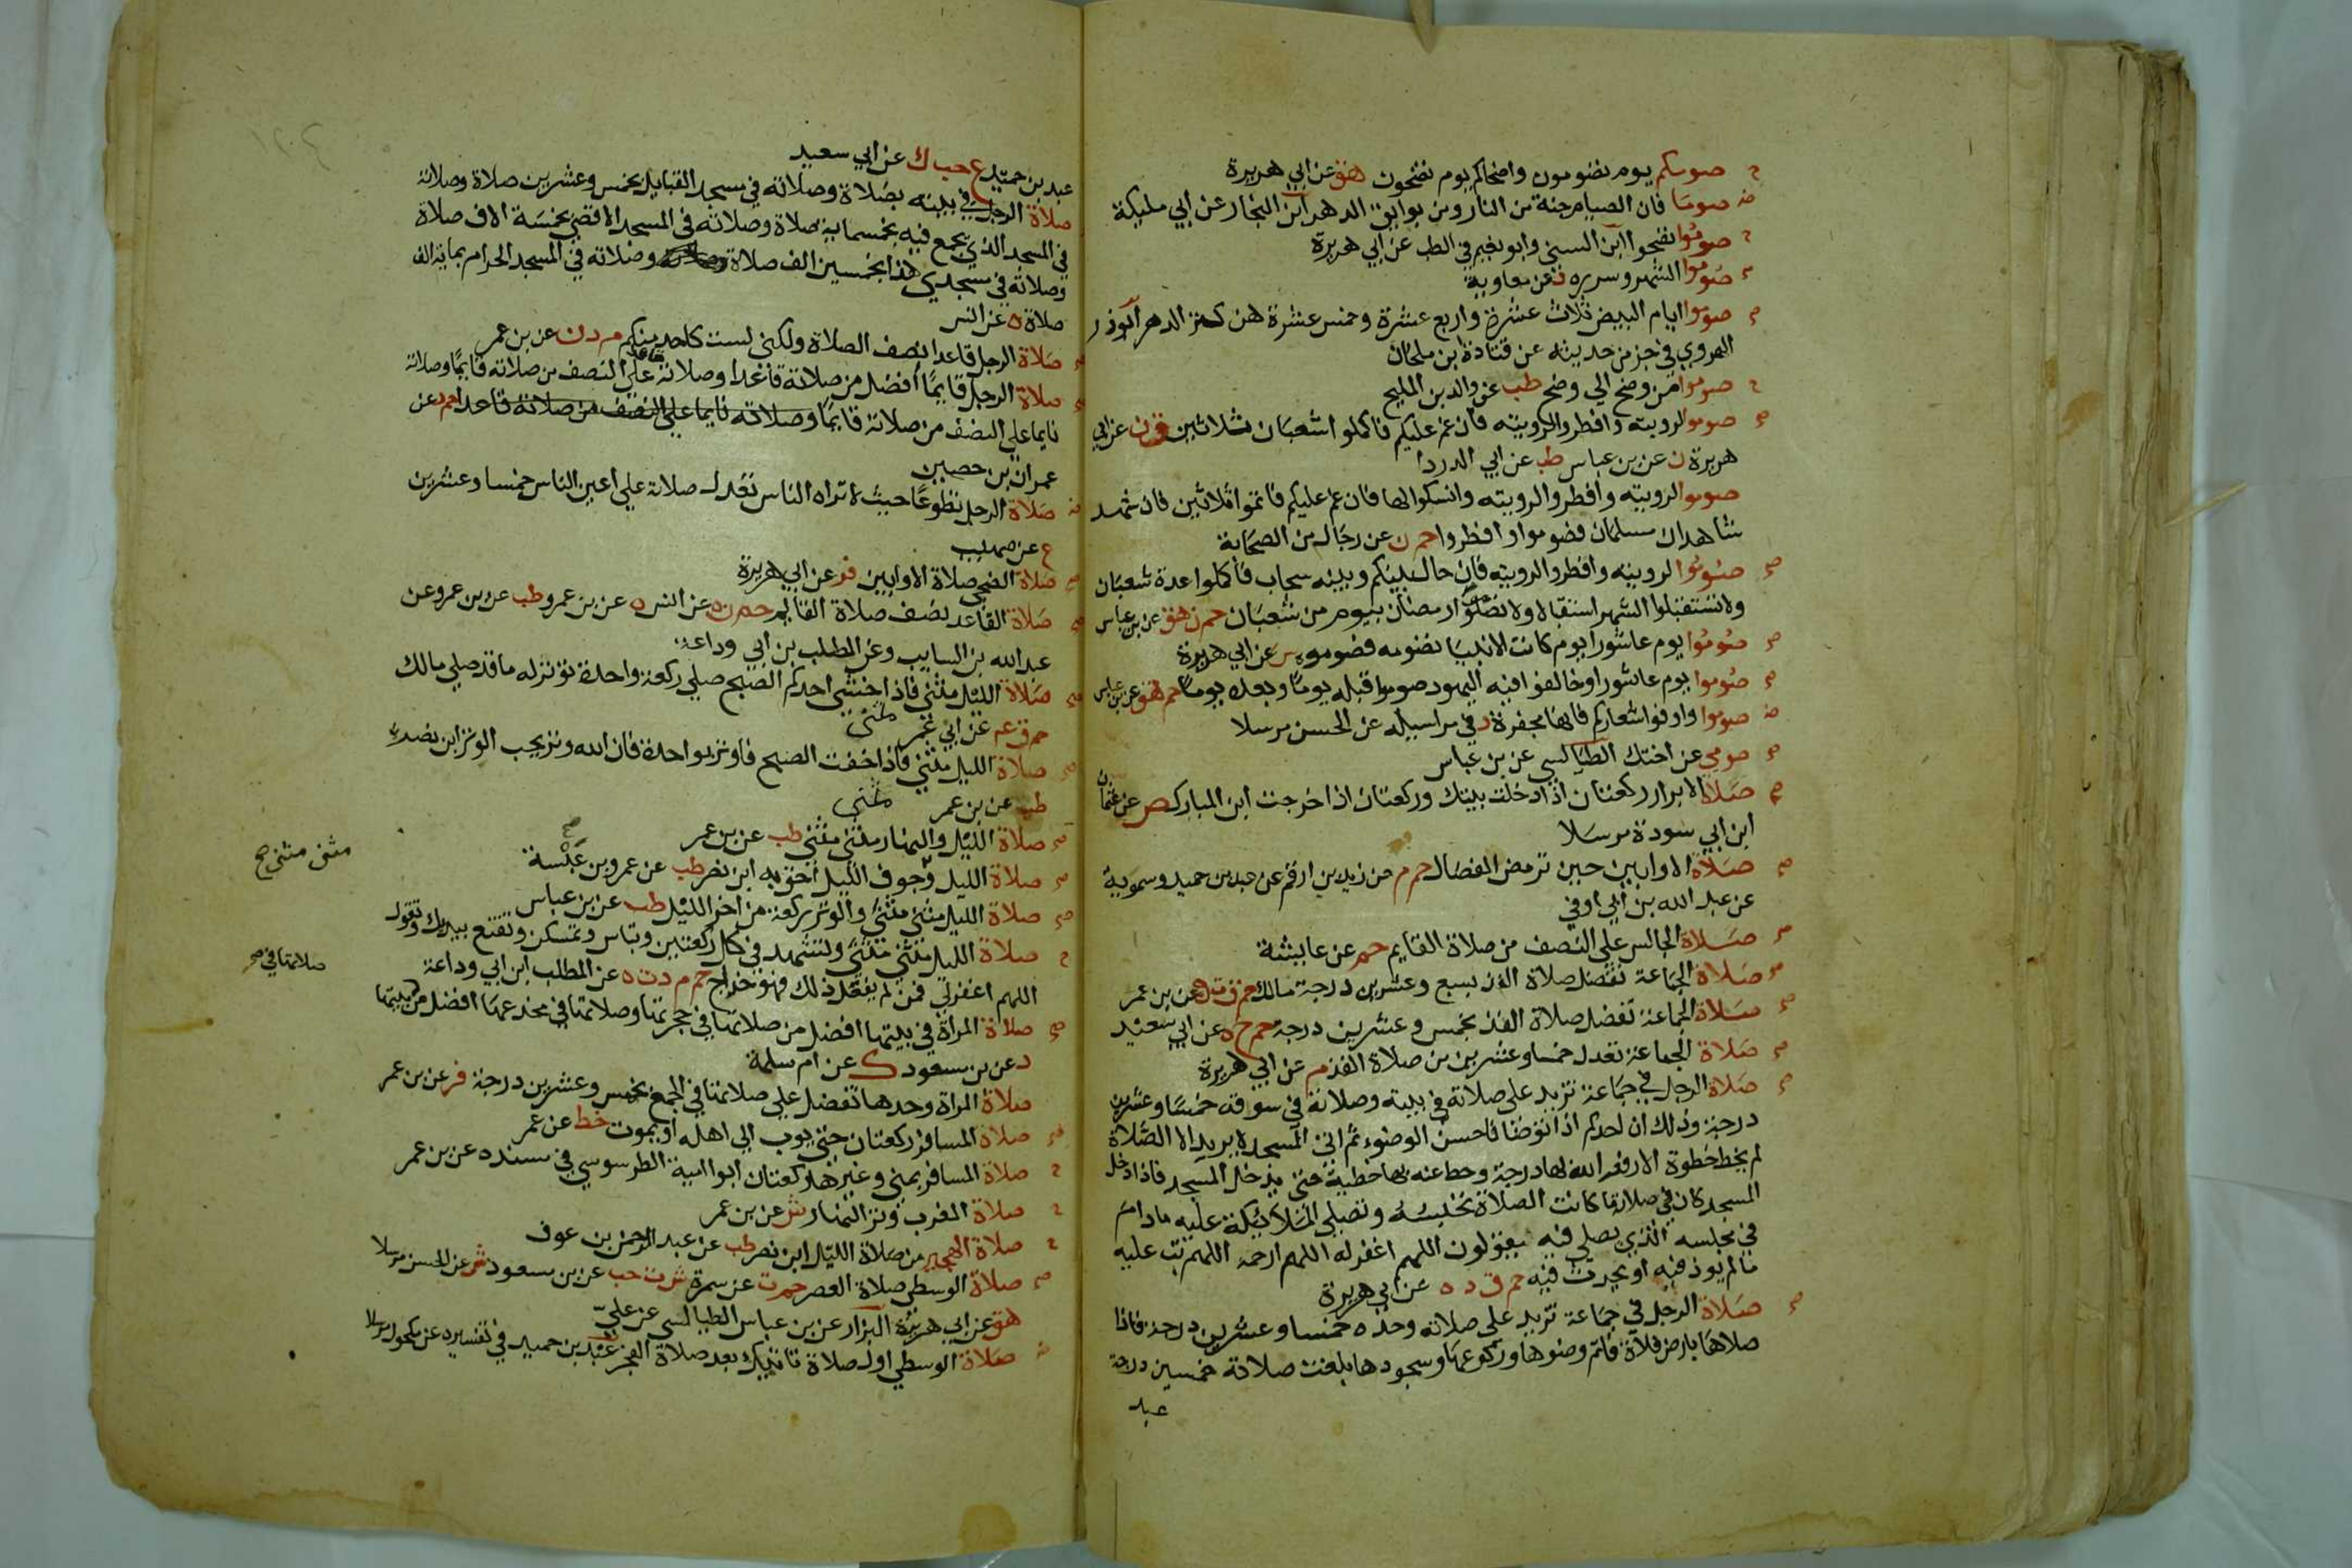 ح صومكم يوم تصومون واضحاكم يوم تضحون هق عن ابي هريرة
ض صوما فان الصيام جنة من النار ومن بوايق الدهر ابن النجار عن ابي مليكة
ح صوموا تصحوا ابن السني وابو نعيم في الطب عن ابي هريرة
صوموا الشهر وسرره د عن معاوية
صح صوموا ايام البيض ثلاث عشرة واربع عشرة وخمس عشرة هن كنز الدهر ابوذر
الهروي في جز من حديثه عن قتادة ابن ملحان
ح صوموا من وضح الي وضح طب عن والد بن المليح
صح صوموا لرويته وافطروا لرويته فان غم عليكم فاكملوا اشعبان ثلاثين ق ن عن ابي
هريرة ن عن بن عباس طب عن ابي الدردا
صوموا لرويته وافطروا لرويته وانسكوا لها فان غم عليكم فاتموا ثلاثين فان شهد
شاهدان مسلمان فصوموا وافطروا حم ن عن رجال من الصحابة
صح صوموا لرويته وافطروا لرويته فان حال بينكم وبينه سحاب فاكملوا عدة شعبان
ولا تستقبلوا الشهر استقبالا ولا تصلوا رمضان بيوم من شعبان حم ن هق عن بن عباس
صح صوموا يوم عاشورا يوم كانت الانبيا تصومه فصوموه ش عن ابي هريرة
صح صوموا يوم عاشورا وخالفوا فيه اليهود صوموا قبله يوما وبعده يوما حم هق عن بن عباس
ض صوموا واوفوا اشعاركم فانها مجفرة د في مراسيله عن الحسن مرسلا
صح صومي عن اختك الطيالسي عن بن عباس
صح صلاة الابرار ركعتان اذا دخلت بيتك وركعتان اذا خرجت ابن المبارك ص عن عثمان
ابن ابي سودة مرسلا
صح صلاة الاوابين حين ترمض الفصال حم م عن زيد بن ارقم عن عبد بن حميد وسمويه
عن عبد الله بن ابي اوفي
صح صلاة الجالس علي النصف من صلاة القايم حم عن عايشة
صح صلاة الجماعة تفضل صلاة الفذ بسبع وعشرين درجة مالك حم ق ت ه عن بن عمر
صح صلاة الجماعة تفضل صلاة الفذ بخمس وعشرين درجة حم خ ه عن ابي سعيد
صح صلاة الجماعة تعدل خمسا وعشرين من صلاة الفذ م عن ابي هريرة
صح صلاة الرجل في جماعة تزيد علي صلاته في بيته وصلاته في سوقه خمسا وعشرين
درجة وذلك ان احدكم اذا توضا فاحسن الوضوء ثم اتي المسجد لا يريد الا الصلاة
لم يخط خطوة الا رفعه الله بها درجة وحط عنه بها خطية حتي يدخل المسجد فاذا دخل
المسجد كان في صلاة ما كانت الصلاة تحبسه وتصلي الملايكة عليه ما دام
في مجلسه الذي يصلي فيه يقولون اللهم اغفر له اللهم ارحمه اللهم تب عليه
ما لم يوذ فيه او يحدث فيه حم ق د ه عن ابي هريرة
صح صلاة الرجل في جماعة تزيد علي صلاته وحده خمسا وعشرين درجة فاذا
صلاها بارض فلاة فاتم وضوها وركوعها وسجودها بلغت صلاته خمسين درجة
عبد
عبد بن حميد ع حب ك عن ابي سعيد
صلاة الرجل في بيته بصلاة وصلاته في مسجد القبايل بخمس وعشرين صلاة وصلاته
في المسجد الذي يجمع فيه بخمسماية صلاة وصلاته في المسجد الاقصي بخمسة الاف صلاة
وصلاته في مسجدي هذا بخمسين الف صلاة وصلاته في المسجد الحرام بماية الف
صلاة ه عن انس
صح صلاة الرجل قاعدا نصف الصلاة ولكني لست كاحد منكم م د ن عن بن عمر
صح صلاة الرجل قايما افضل من صلاته قاعدا وصلاته قاعدا علي النصف من صلاته قايما وصلاته
نايما علي النصف من صلاته قايما وصلاته نايما علي النصف من صلاته قاعدا حم د عن
عمران بن حصين
ض صلاة الرجل تطوعا حيث لا تراه الناس تعدل صلاته علي اعين الناس خمسا وعشرين
ع عن صهيب
صح صلاة الضحي صلاة الاوابين فر عن ابي هريرة
صح صلاة القاعد نصف صلاة القايم حم ن ه عن انس ه عن بن عمرو طب عن بن عمر وعن
عبد الله بن السايب وعن المطلب بن ابي وداعة
صح صلاة الليل مثني فاذا خشي احدكم الصبح صلي ركعة واحدة توتر له ما قد صلي مالك
حم ق عم عن ابي عمر مثني
صح صلاة الليل مثني فاذا خفت الصبح فاوتر بواحدة فان الله وتر يحب الوتر ابن نصر
طب عن بن عمر مثني
صح صلاة الليل والنهار مثني مثني طب عن بن عمر
مثنى مثنى صح
صح صلاة الليل وجوف الليل احق به ابن نصر طب عن عمرو بن عبسة
صح صلاة الليل مثني مثني والوتر ركعة من اخر الليل طب عن بن عباس
ح صلاة الليل مثني مثني وتشهد في كل ركعتين وتباس وتمسكن وتقنع بيديك وتقول
اللهم اغفر لي فمن لم يفعل ذلك فهو خداج حم د ت ه عن المطلب ابن ابي وداعة
صلاتها في صح
صح صلاة المراة في بيتها افضل من صلاتها في حجرتها وصلاتها في مخدعها افضل من بيتها
د عن بن مسعود ك عن ام سلمة
صلاة المراة وحدها تفضل علي صلاتها في الجمع بخمس وعشرين درجة فر عن بن عمر
صلاة المسافر ركعتان حتي يوب الي اهله او يموت خط عن عمر
ح صلاة المسافر بمني وغيرها ركعتان ابو امية الطرسوسي في مسنده عن بن عمر
ح صلاة المغرب وتر النهار ش عن بن عمر
ح صلاة الهجير من صلاة الليل ابن نصر طب عن عبد الرحمن بن عوف
صح صلاة الوسطي صلاة العصر حم ت عن سمرة ش ت حب عن بن مسعود ش عن الحسن مرسلا
هق عن ابي هريرة البزار عن بن عباس الطيالسي عن علي
ض صلاة الوسطي اول صلاة تاتيك بعد صلاة الفجر عبد بن حميد في تفسيره عن مكحول مرسلا